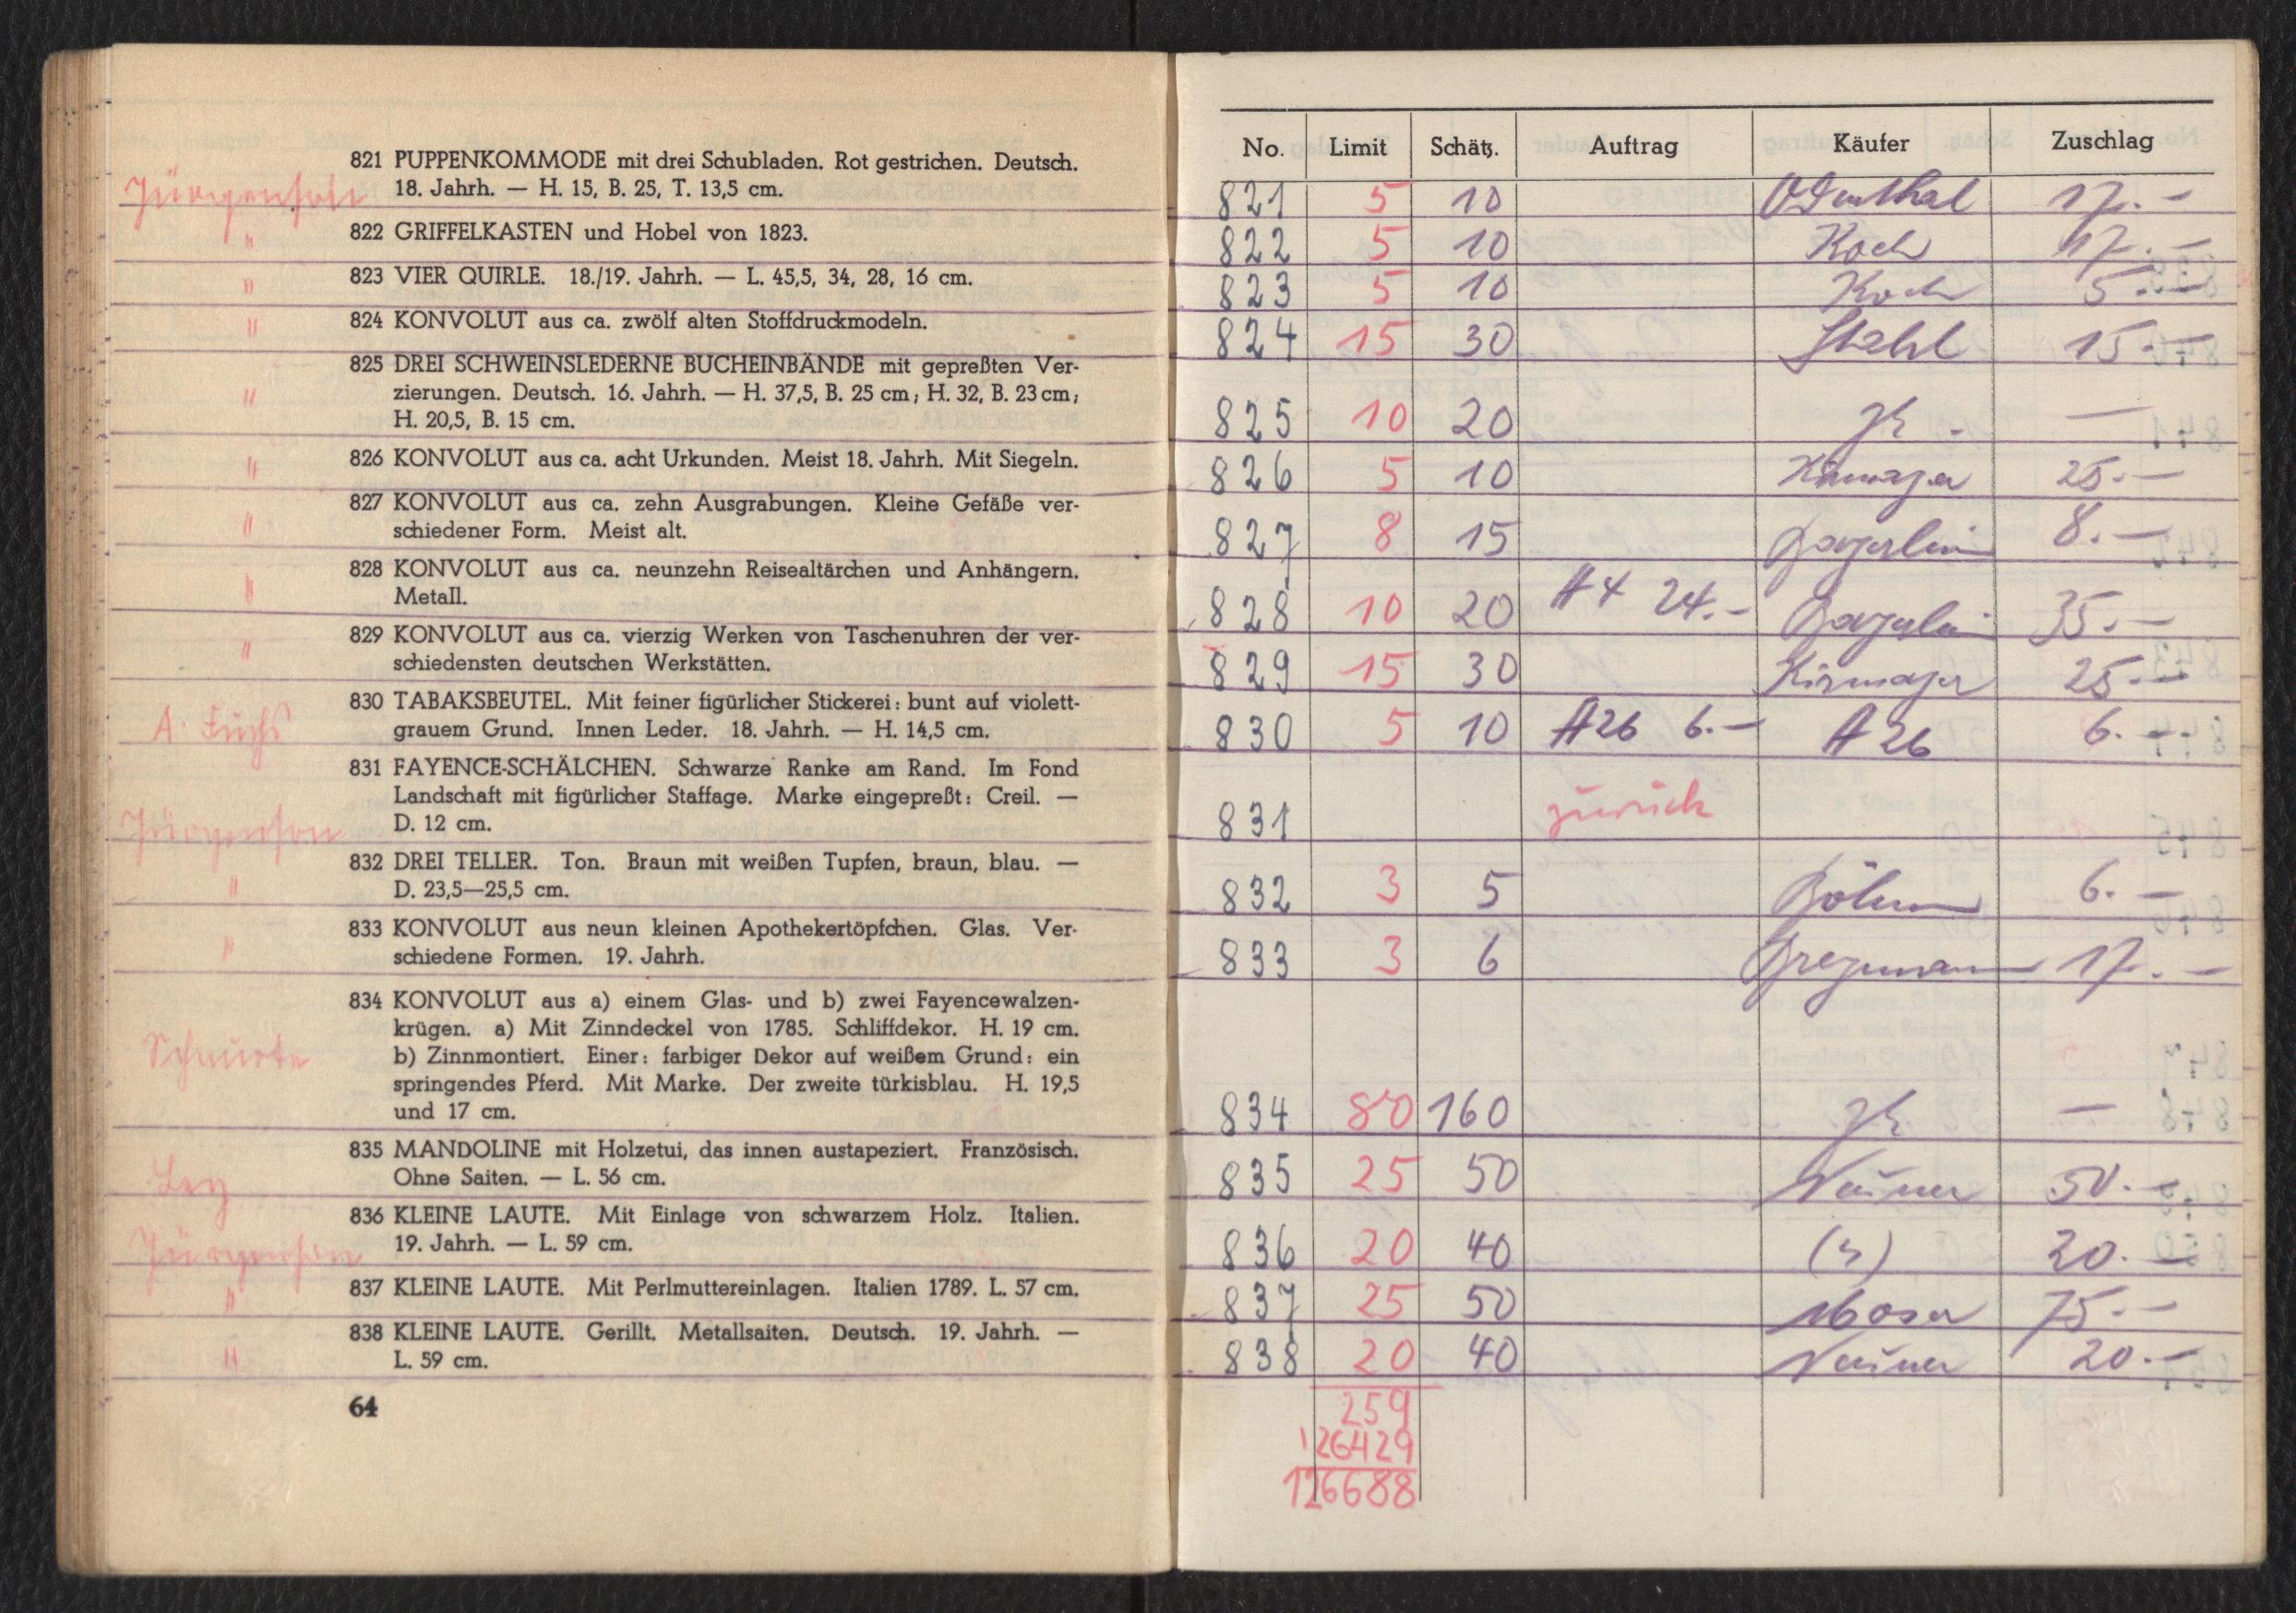 821 PUPPENKOMMODE mit drei Schubladen. Rot gestrichen. Deutsch.
Jürgenson 18. Jahrh. — H. 15, B. 25, T. 13,5 cm.
" 822 GRIFFELKASTEN und Hobel von 1823.
" 823 VIER QUIRLE. 18./19. Jahrh. — L. 45,5, 34, 28, 16 cm.
" 824 KONVOLUT aus ca. zwölf alten Stoffdruckmodeln.
825 DREI SCHWEINSLEDERNE BUCHEINBÄNDE mit gepreßten Ver-
" zierungen. Deutsch. 16. Jahrh. — H. 37,5, B. 25 cm; H. 32, B. 23 cm;
H. 20,5, B. 15 cm.
" 826 KONVOLUT aus ca. acht Urkunden. Meist 18. Jahrh. Mit Siegeln.
827 KONVOLUT aus ca. zehn Ausgrabungen. Kleine Gefäße ver-
" schiedener Form. Meist alt.
828 KONVOLUT aus ca. neunzehn Reisealtärchen und Anhängern.
" Metall.
829 KONVOLUT aus ca. vierzig Werken von Taschenuhren der ver-
" schiedensten deutschen Werkstätten.
830 TABAKSBEUTEL. Mit feiner figürlicher Stickerei: bunt auf violett-
A. Fuchs grauem Grund. Innen Leder. 18. Jahrh. — H. 14,5 cm.
831 FAYENCE-SCHÄLCHEN. Schwarze Ranke am Rand. Im Fond
Landschaft mit figürlicher Staffage. Marke eingepreßt: Creil. —
Jürgenson D. 12 cm.
832 DREI TELLER. Ton. Braun mit weißen Tupfen, braun, blau. —
" D. 23,5—25,5 cm.
833 KONVOLUT aus neun kleinen Apothekertöpfchen. Glas. Ver-
" schiedene Formen. 19. Jahrh.
834 KONVOLUT aus a) einem Glas- und b) zwei Fayencewalzen-
krügen. a) Mit Zinndeckel von 1785. Schliffdekor. H. 19 cm.
b) Zinnmontiert. Einer: farbiger Dekor auf weißem Grund: ein
springendes Pferd. Mit Marke. Der zweite türkisblau. H. 19,5
und 17 cm.
835 MANDOLINE mit Holzetui, das innen austapeziert. Französisch.
Ley Ohne Saiten. — L. 56 cm.
836 KLEINE LAUTE. Mit Einlage von schwarzem Holz. Italien.
Jürgenson 19. Jahrh. — L. 59 cm.
" 837 KLEINE LAUTE. Mit Perlmuttereinlagen. Italien 1789. L. 57 cm.
838 KLEINE LAUTE. Gerillt. Metallsaiten. Deutsch. 19. Jahrh. —
" L. 59 cm.
64
No. Limit Schätz. Auftrag Käufer Zuschlag
821 5 10 Odenthal 17.-
822 5 10 Koch 17.-
823 5 10 Koch 5.-
824 15 30 Stahl 15.-
825 10 20 —
826 5 10 25.-
827 8 15 8.-
828 10 20 A4 24.- 35.-
829 15 30 Kirmajer 25.-
830 5 10 A26 6.- A26 6.-
831 zurück
832 3 5 Böhm 6.-
833 3 6 17.-
834 80 160 —
835 25 50 50.-
836 20 40 20.-
837 25 50 Moser 75.-
838 20 40 20.-
259
126429
126688